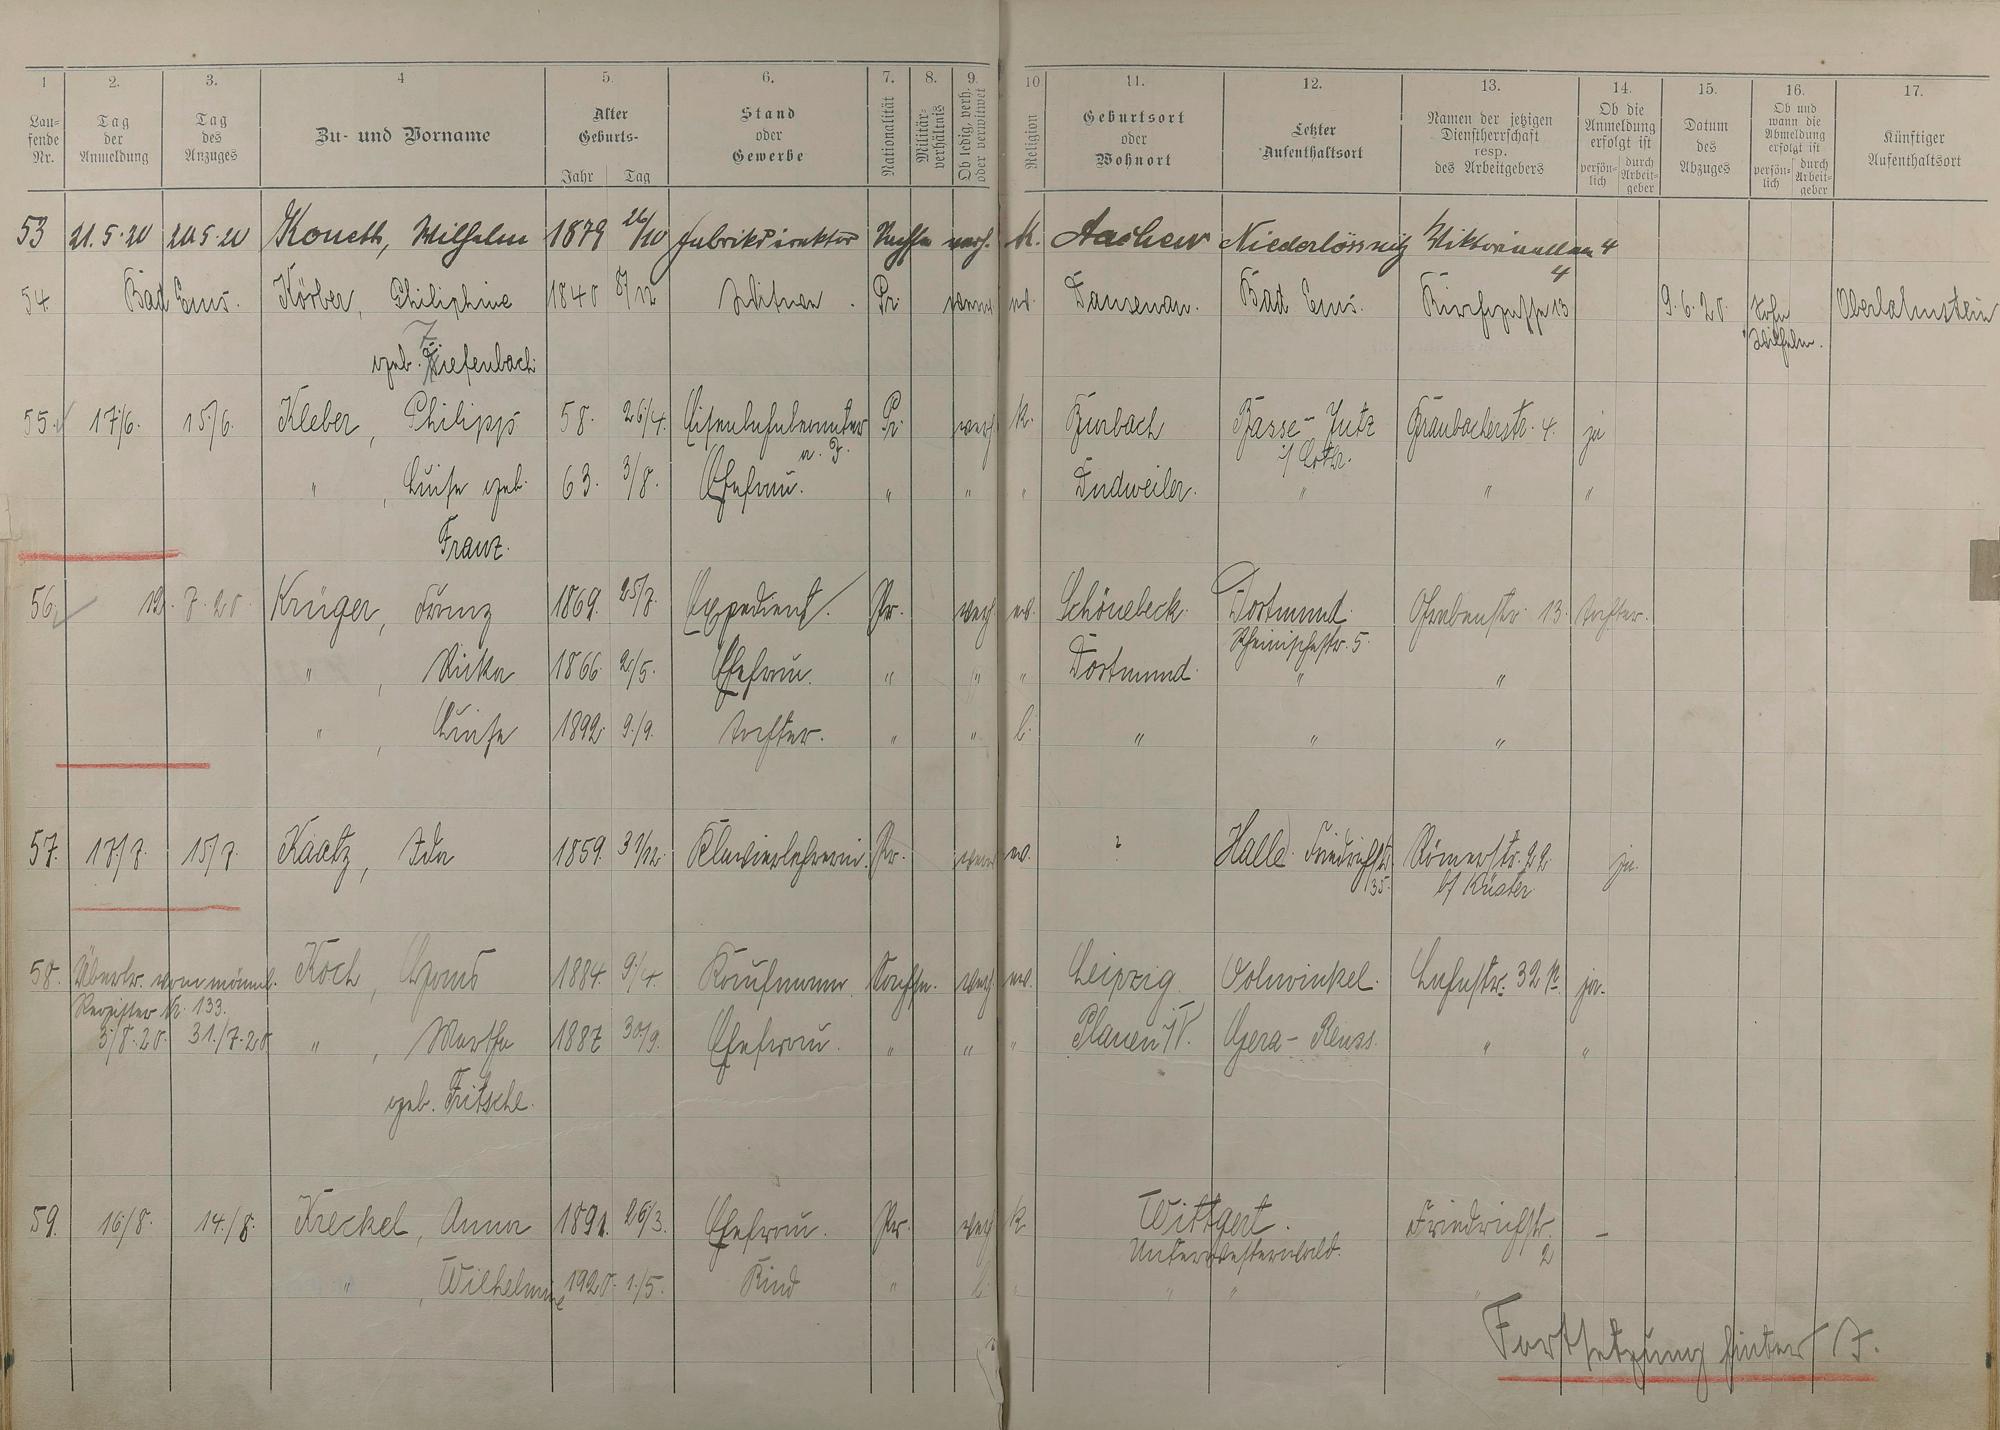 1 2. 3. 4 5. 6. 7. 8. 9. 10 11. 12. 13. 14. 15. 16. 17.
Lau-
fende
Nr.
Tag
der
Anmeldung
Tag
des
Anzuges
Zu- und Vorname
Alter
Geburts-
Jahr Tag
Stand
oder
Gewerbe
Nationalität
Militär-
verhältnis
Ob ledig, verh.
oder verwitwet
Religion
Geburtsort
oder
Wohnort
Letzter
Aufenthaltsort
Namen der jetzigen
Dienstherrschaft
resp.
des Arbeitgebers
Ob die
Anmeldung
erfolgt ist
persön-
lich
durch
Arbeit-
geber
Datum
des
Abzuges
Ob und
wann die
Abmeldung
erfolgt ist
persön-
lich
durch
Arbeit-
geber
Künftiger
Aufenthaltsort
53 21.5.20 20.5.20 Koneth, Wilhelm 1879 26/10 Fabrikdirektor verh. k. Aachen Niederlössnitz Viktoriaallee 4
4
54. Bad Ems. Körber, Philippine 1840 8/12 Pr. Dausenau. Bad Ems. Kirchgasse 13 9.6.20. Sohn Oberlahnstein
Wilhelm.
geb. Tiefenbach
55. 17/6. 15/6. Kleber, Philipp 58. 26/4. Eisenbahnbeamter Pr. verh. k. Burbach Basse-Jutz Braubacherstr. 4. ja
a. D. i/ Lothr.
" , Luise geb. 63. 3/8. Ehefrau. " " " Dudweiler. " " "
Franz.
56. 12. 7. 20 Krüger, Franz 1869. 25/7. Expedient. Pr. verh. ev. Schönebeck. Dortmund. Grabenstr. 13. Tochter.
Rheinischestr. 5.
" , Rieka 1866 2/5. Ehefrau. " " " Dortmund. " "
" , Luise 1892. 9./9. Tochter. " " l. " " "
57. 17/7. 15/7. Kaatz, Ida 1859. 31/12. Klavierlehrerin. Pr. ev. ? Halle Friedrichstr. Römerstr. 22. ja.
35. b/ Küster
58. Übertr. vom männl. Koch, 1884. 9/4. Kaufmann. Sachse. verh. ev. Leipzig. Vohwinkel. Lahnstr. 32 ja.
Register Nr. 133.
3/8.20. 31./7.20 " , Martha 1887 30/9. Ehefrau. " " " Plauen i/V. Gera-Reuss. " "
geb. Fritsche.
59. 16/8. 14./8. Kreckel, Anna 1891. 26/3. Ehefrau. Pr. verh k Wittgert. Friedrichstr. –
Unterwesterwald. 2
" , Wilhelmine 1920. 1./5. Kind " l. " " " "
Fortsetzung hinter J.